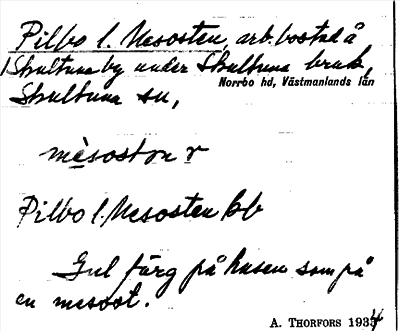 Pilbo l. Mesosten, arb.bostad å
Skultuna by under Skultuna bruk,
Norrbo hd, Västmanlands län
Skultuna sn,
mèsostɷn r
Pilbo l. Mesosten bb
Gul färg på husen som på
en mesost.
A. THORFORS 1934